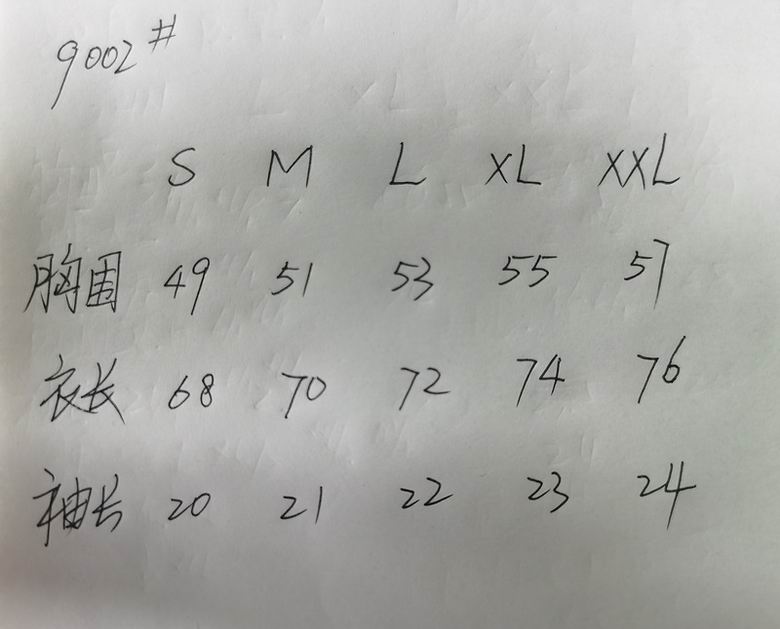 9002#
S M L XL XXL
胸围 49 51 53 55 57
衣长 68 70 72 74 76
袖长 20 21 22 23 24